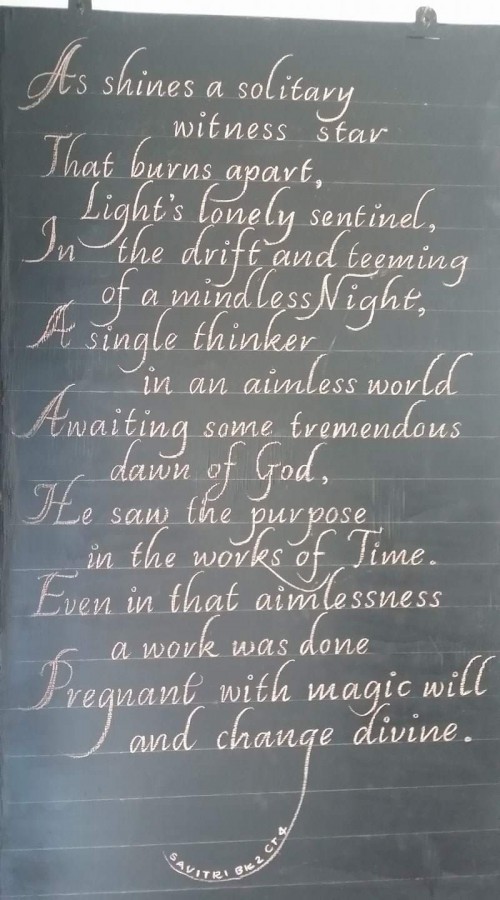 As shines a solitary
witness star
That burns apart,
Light's lonely sentinel,
In the drift and teeming
of a mindless Night,
A single thinker
in an aimless world
Awaiting some tremendous
dawn of God,
He saw the purpose
in the works of Time.
Even in that aimlessness
a work was done
Pregnant with magic will
and change divine.
SAVITRI BK2 CT4